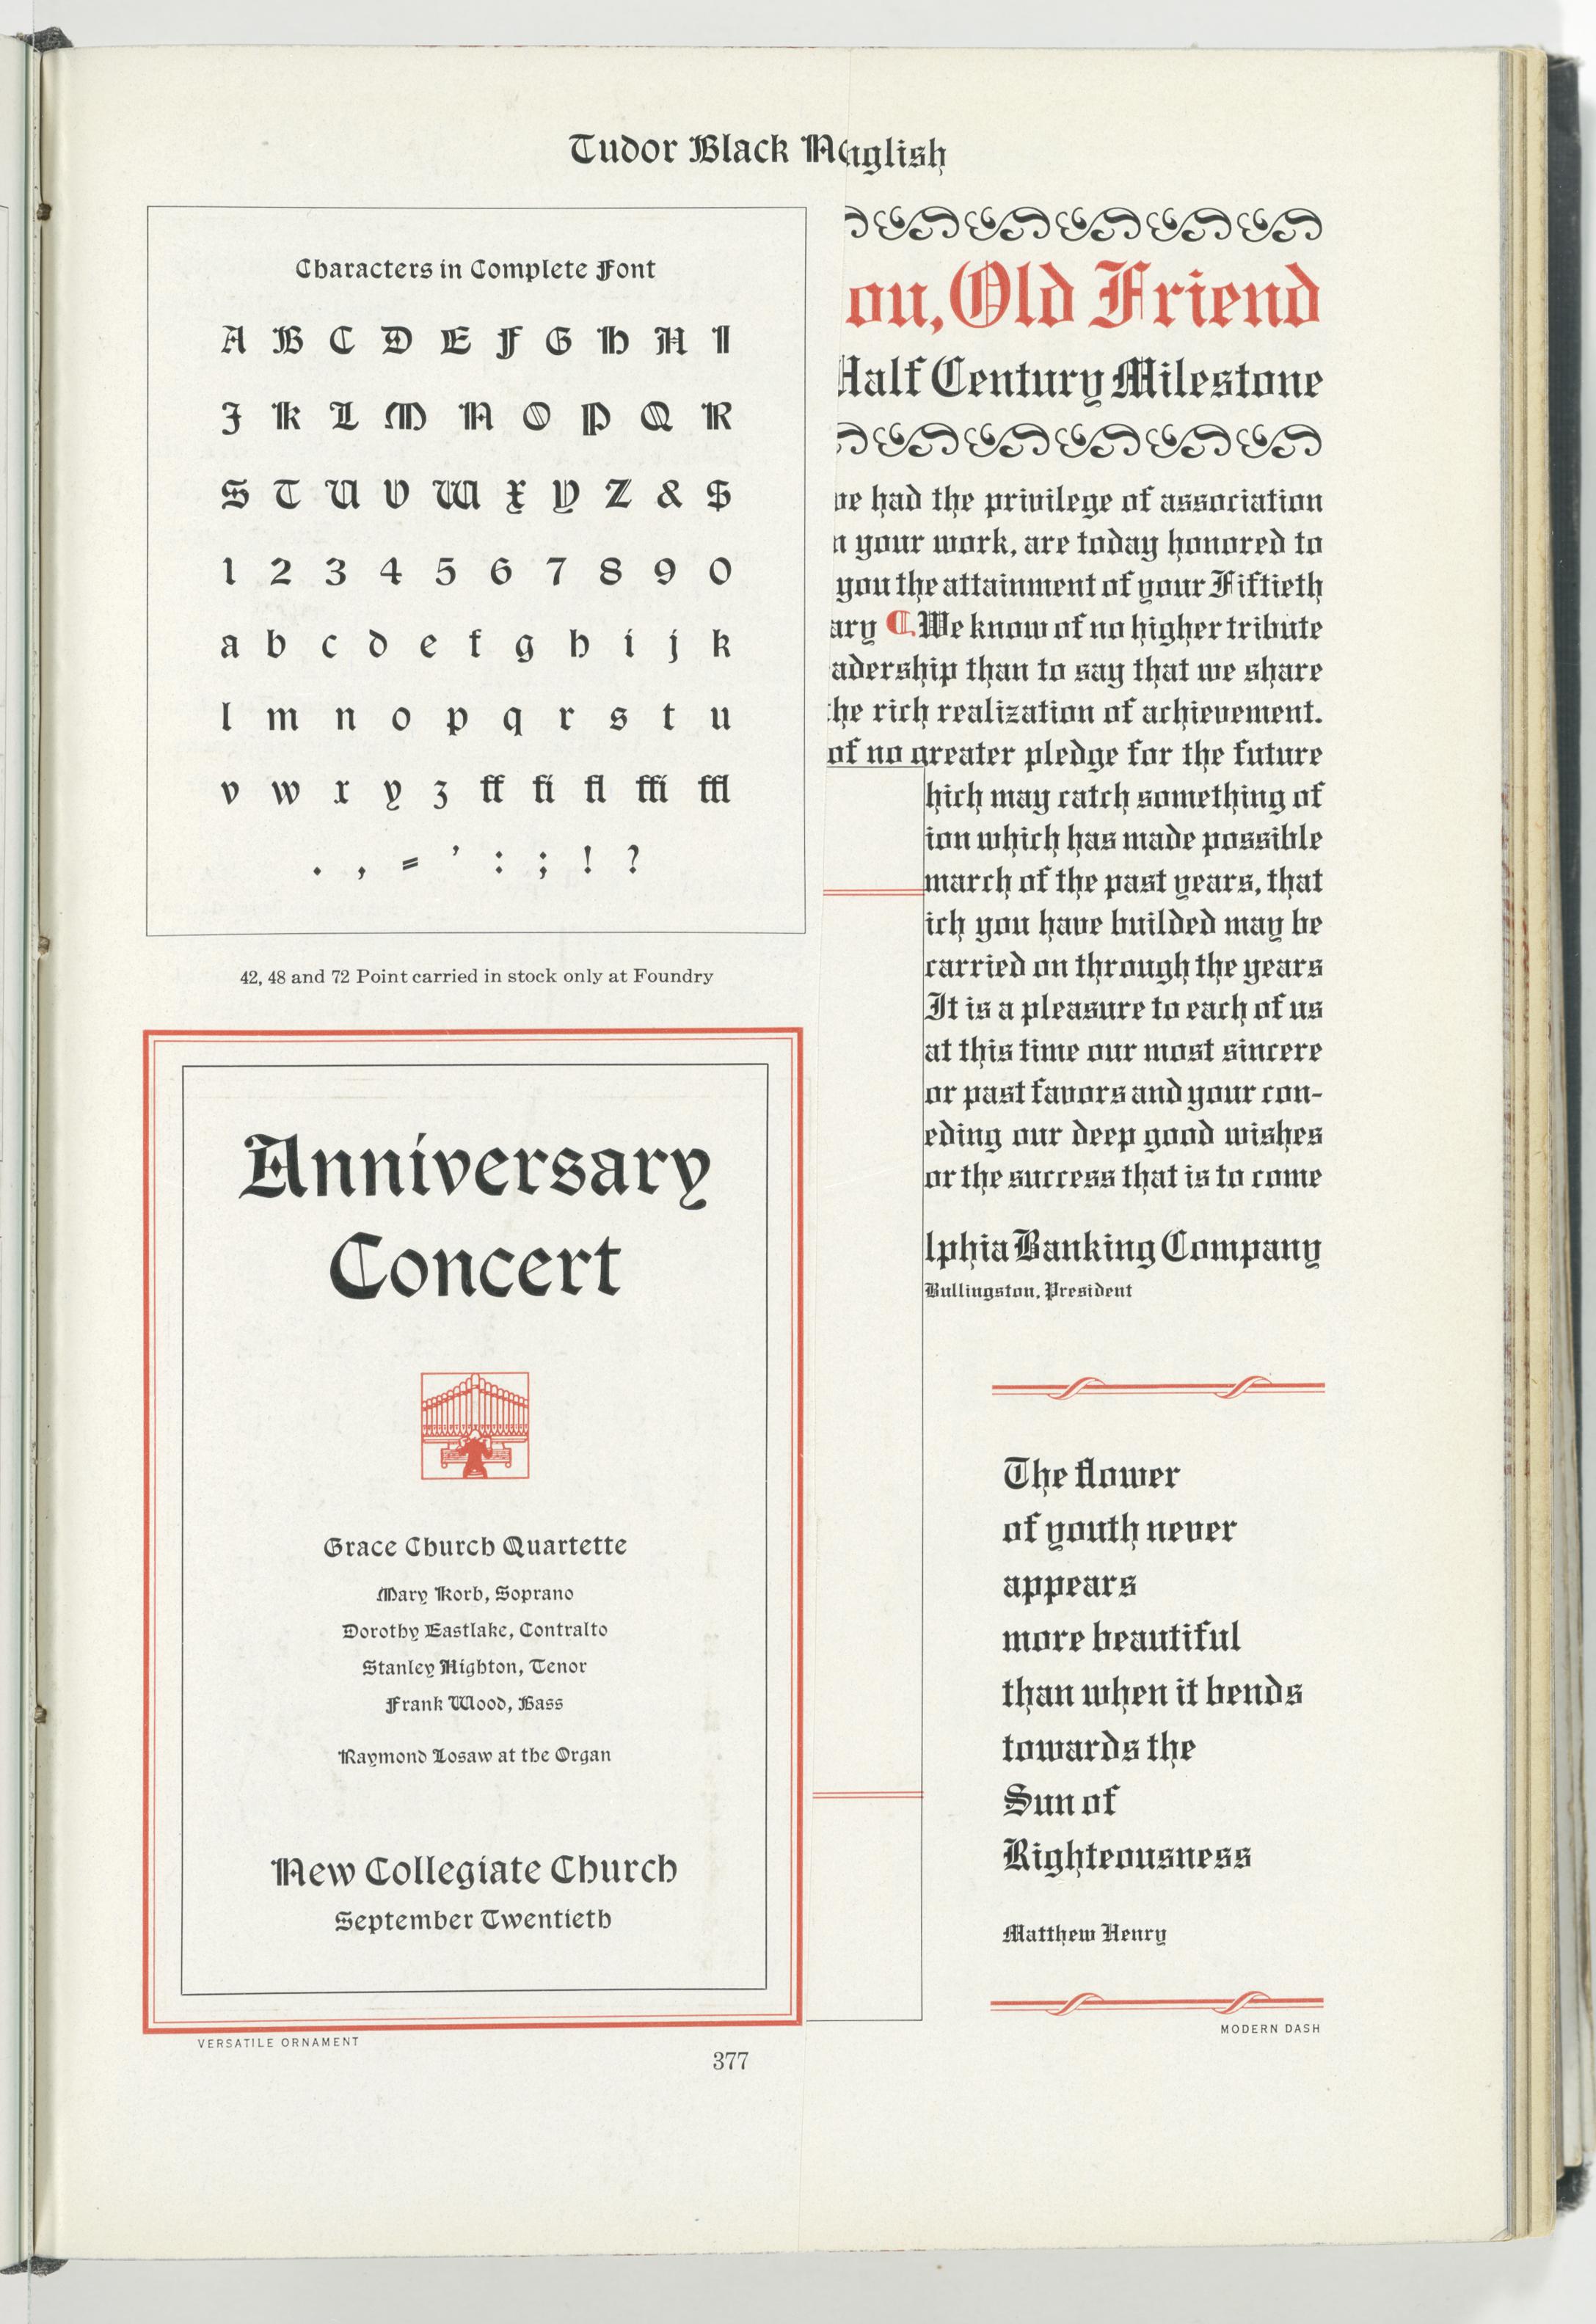 Tudor Black
nglish
Characters in Complete Font
A B C D E F G H H I
J K L M N O P Q R
S T U V W X Y Z & $
1 2 3 4 5 6 7 8 9 0
a b c d e f g h i j k
l m n o p q r s t u
v w x y z ff fi fl ffi ffl
. , = ’ : ; ! ?
42, 48 and 72 Point carried in stock only at Foundry
Anniversary
Concert
Grace Church Quartette
Mary Korb, Soprano
Dorothy Eastlake, Contralto
Stanley Highton, Tenor
Frank Wood, Bass
Raymond Losaw at the Organ
New Collegiate Church
September Twentieth
VERSATILE ORNAMENT
377
ou, Old Friend
Half Century Milestone
ve had the privilege of association
n your work, are today honored to
you the attainment of your Fiftieth
ary ¶ We know of no higher tribute
adership than to say that we share
he rich realization of achievement.
of no greater pledge for the future
hich may catch something of
ion which has made possible
march of the past years, that
ich you have builded may be
carried on through the years
It is a pleasure to each of us
at this time our most sincere
or past favors and your con-
eding our deep good wishes
or the success that is to come
lphia Banking Company
Bullingston, President
The flower
of youth never
appears
more beautiful
than when it bends
towards the
Sun of
Righteousness
Matthew Henry
MODERN DASH